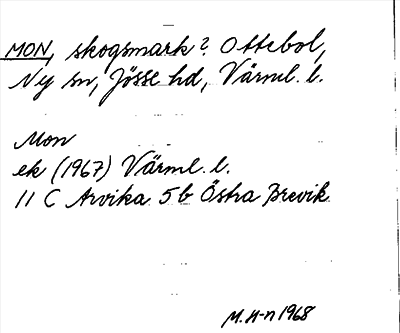 MON, skogsmark? Ottebol,
Ny sn, Jösse hd, Värml. l.
Mon
ek (1967) Värml. l.
11 C Arvika 5b Östra Brevik
M. H-n 1968